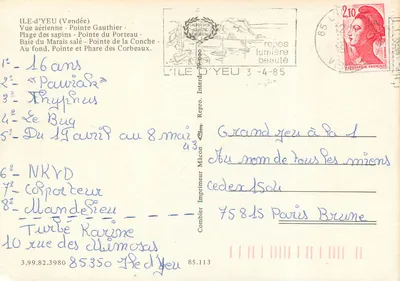 ILE-d'YEU (Vendée)
Vue aérienne - Pointe Gauthier -
Plage des sapins - Pointe du Porteau -
Baie du Marais salé - Pointe de la Conche -
Au fond, Pointe et Phare des Corbeaux.
1°- 16 ans
2°- "Pawiak"
3°- Thyphus
4°- Le Bug
5° Du 1 Avril au 8 mai
43
6°- NKVD
7°- Colporteur
8°- Mandelieu
Turbé Karine
10 rue des Mimosas
85350 Ile d'Yeu
3.99.82.3980
85.113
Combier Imprimeur Mâcon
Repro. Interd.
repos
lumière
beauté
L'ILE D'YEU 3-4-85
2,10
Grand jeu à la 1
Au nom de tous les miens
Cedex 1504
75815 Paris Brune